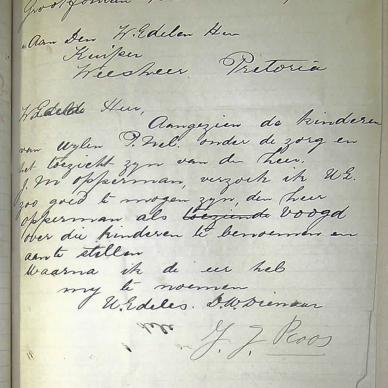 Aan Den W.Edelen Heer
Kuijper
Weesheer Pretoria
W.Edele Heer,
Aangezien de kinderen
van wylen P. Nel. onder de zorg en
het toezicht zyn van de heer.
J. M opperman, verzoek ik U.E.
zoo goed te mogen zyn, den heer
opperman als toeziende voogd
over die kinderen te benoemen en
aante stellen
Waarna ik de eer heb
my te noemen
U.Edeles. D.W. Dienaar
J. J. Roos